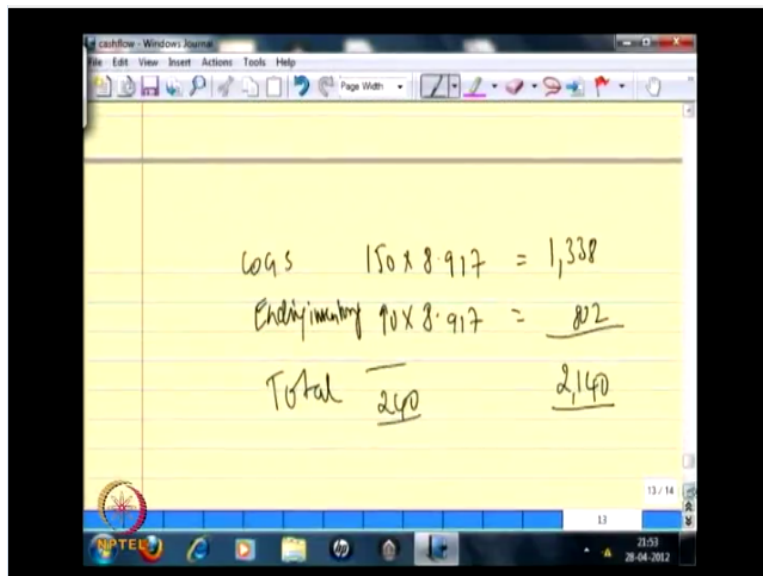 cashflow - Windows Journal
File Edit View Insert Actions Tools Help
Page Width
COGS 150 x 8.917 = 1,338
Ending inventory 90 x 8.917 = 802
Total 240 2,140
13 / 14
13
NPTEL
hp
21:53
28-04-2012